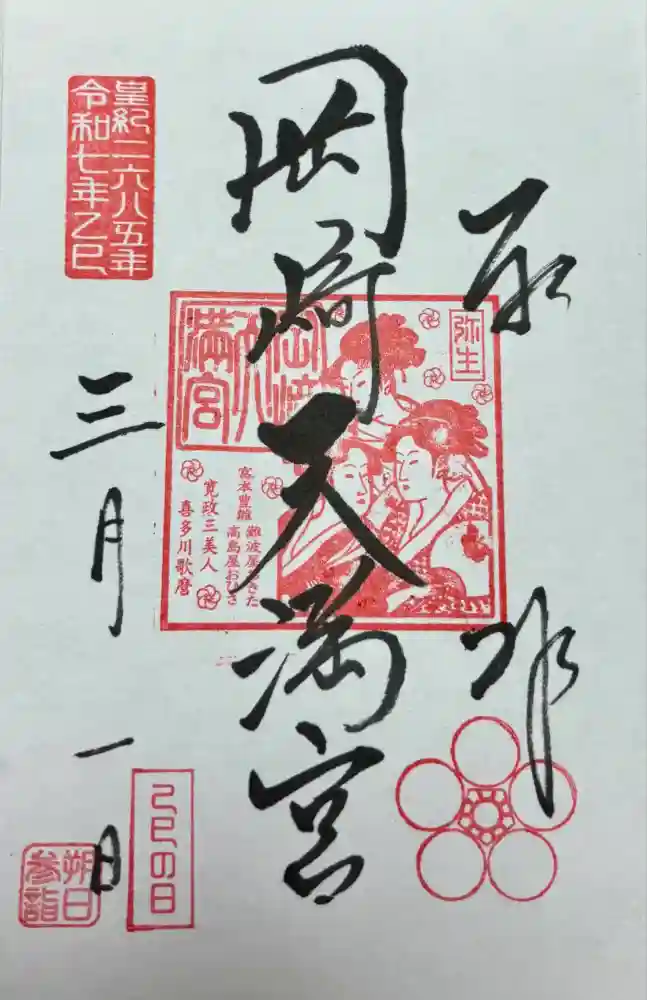 奉拝
岡崎天満宮
三月一日
皇紀二六八五年
令和七年乙巳
弥生
岡崎天満宮
富本豊雛
難波屋おきた
高島屋おひさ
寛政三美人
喜多川歌麿
己巳の日
朔日参詣